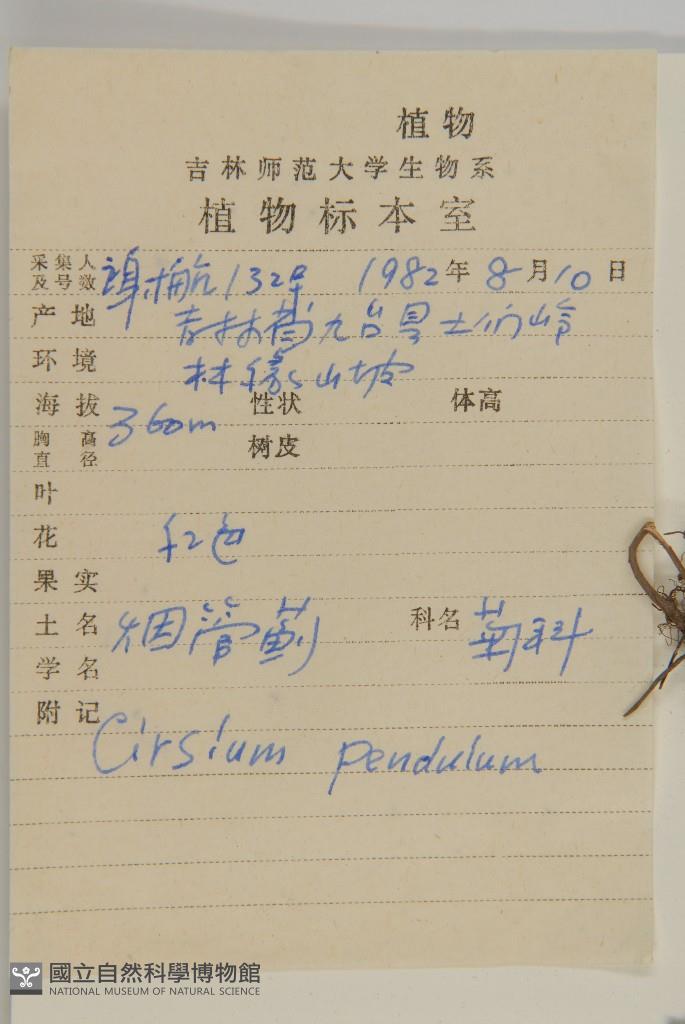 植物
吉林师范大学生物系
植物标本室
采集人及号数 航 132号 1982年8月10日
产地 吉林省九台县土们岭
环境 林缘山坡
海拔 360m 性状 体高
胸高直径 树皮
叶
花 红色
果实
土名 烟管蓟 科名 菊科
学名
附记
Cirsium pendulum
國立自然科學博物館
NATIONAL MUSEUM OF NATURAL SCIENCE